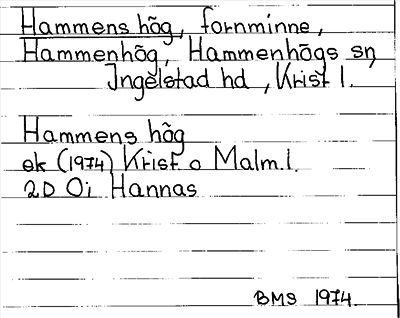 Hammens hög, fornminne,
Hammenhög, Hammenhögs sn,
Ingelstad hd, Krist l.
Hammens hög
ek (1974) Krist o Malm.l.
2D Oi Hannas
BMS 1974